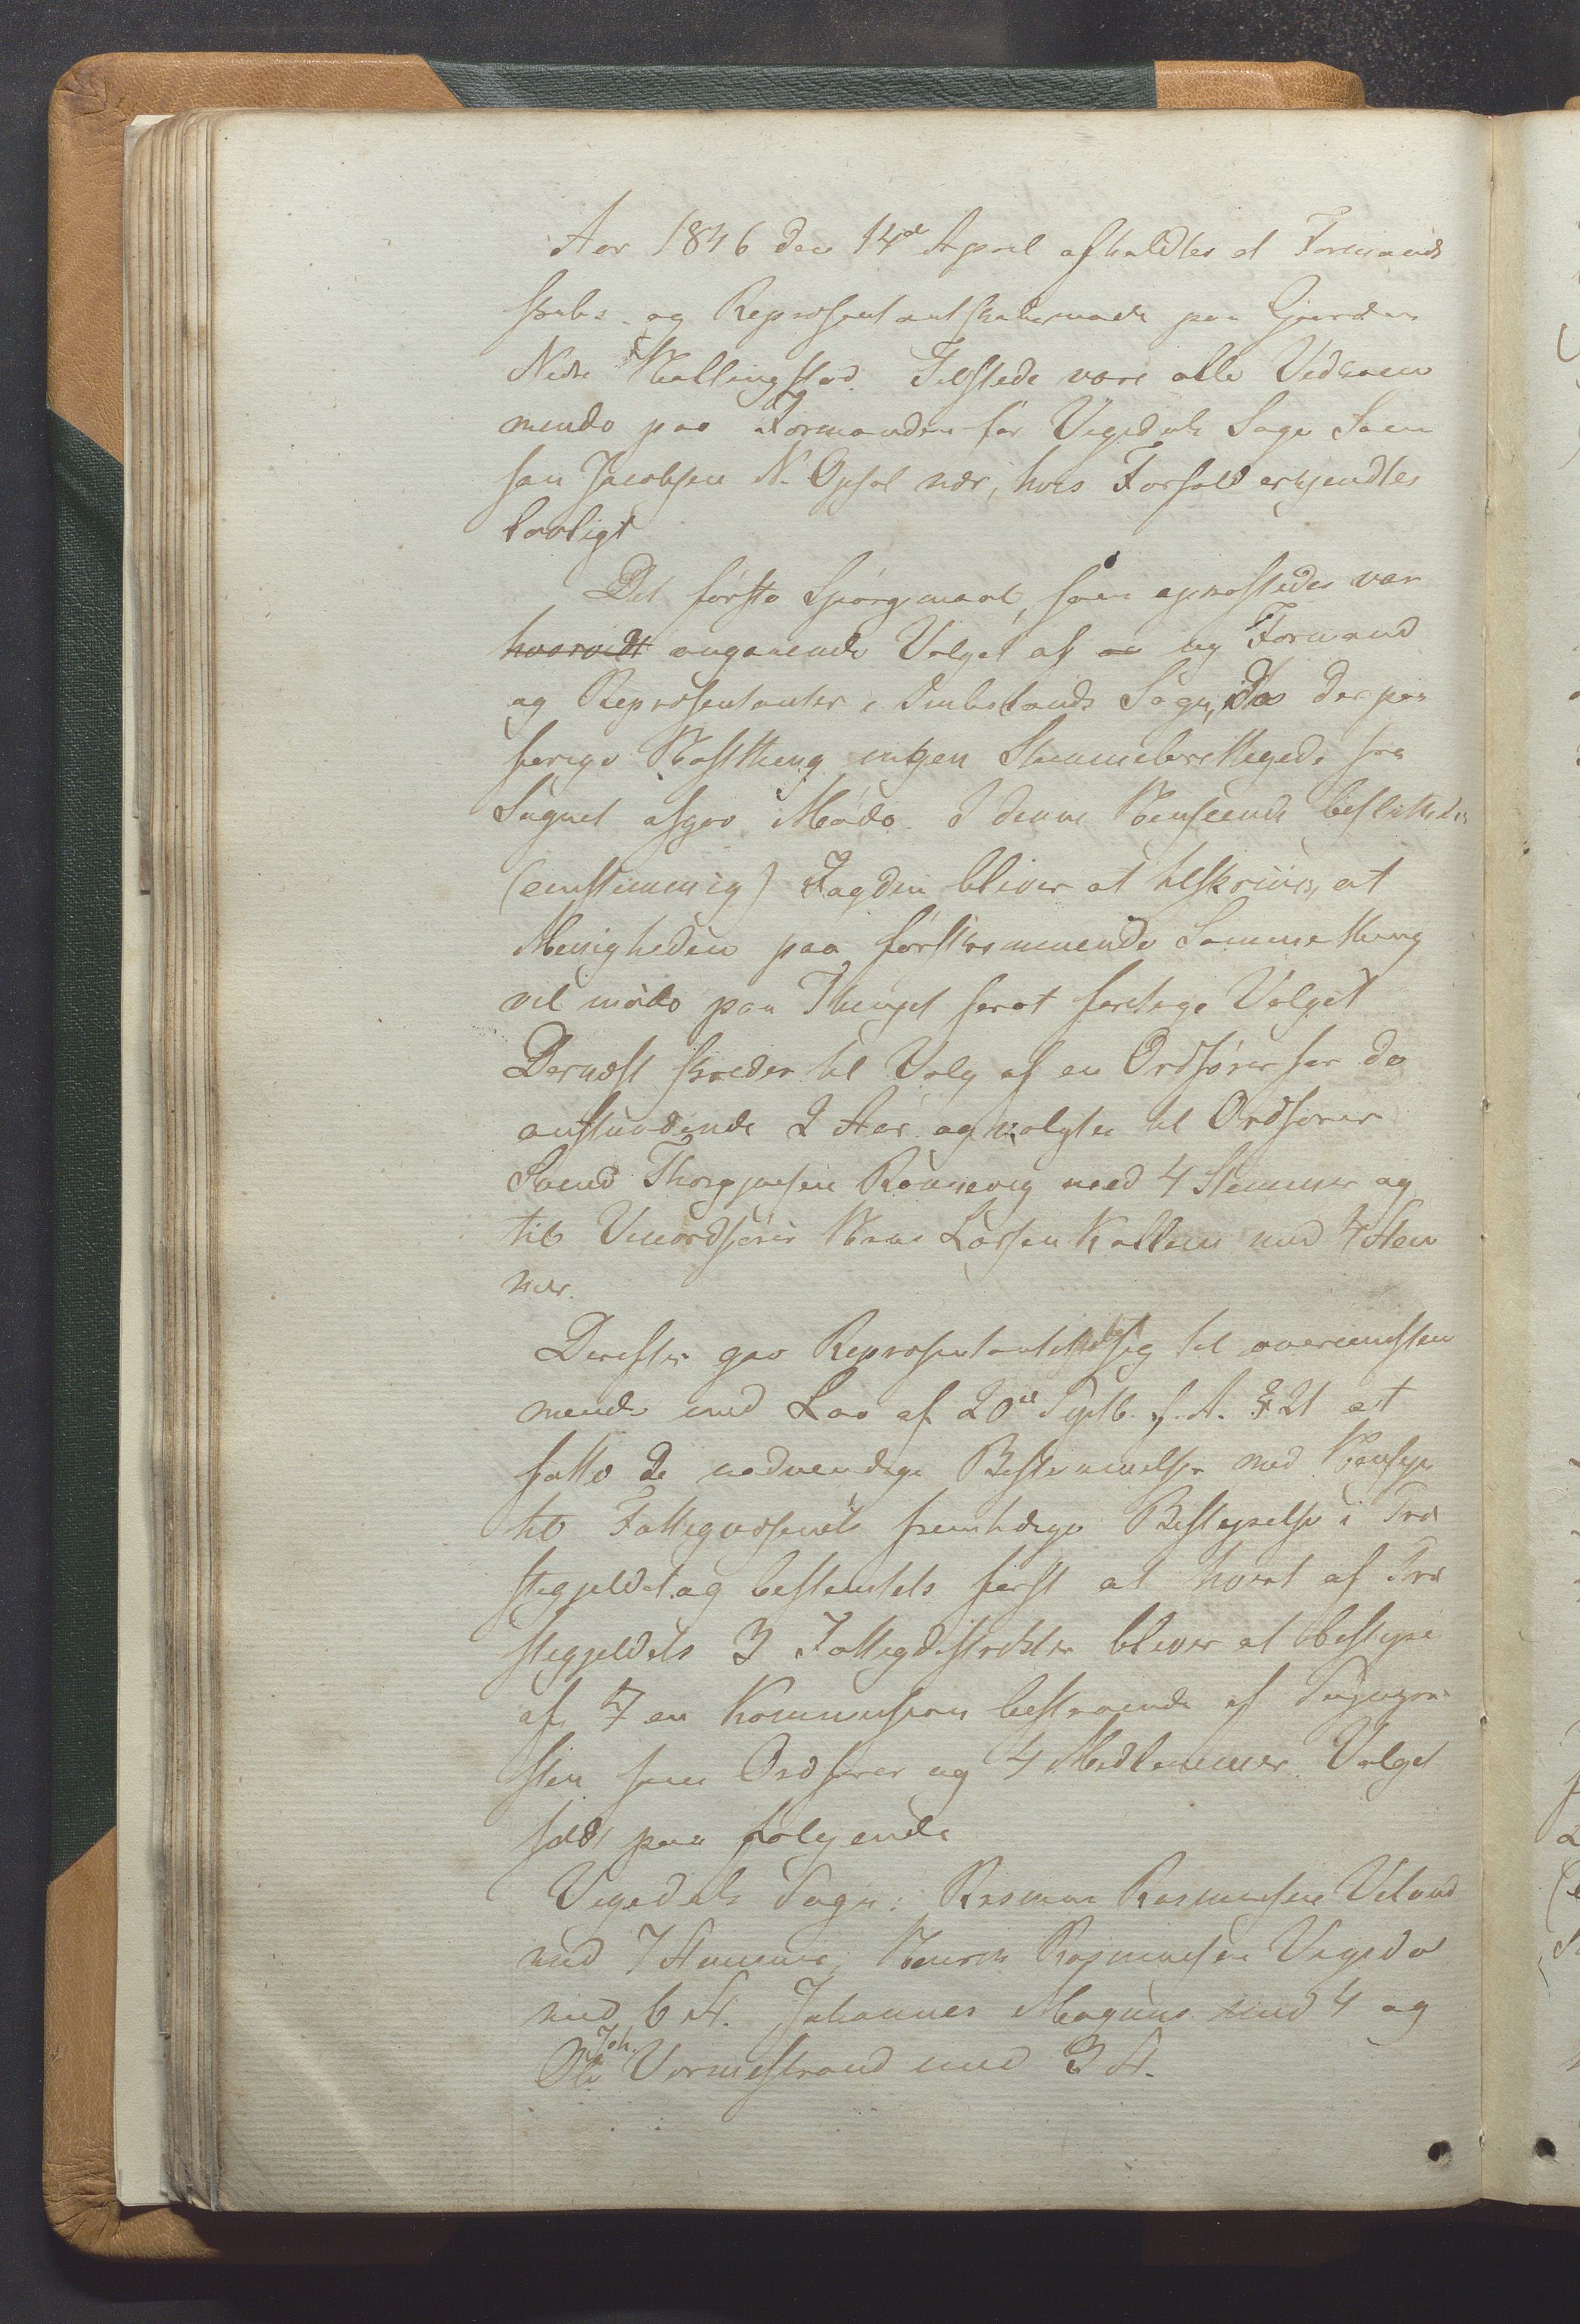 Aar 1846 den 14de April afholdtes et Formand
skabs- og Repræsentantskabsmøde paa Gaarden
Nedre Hallingstad. Tilstede vare alle Vedkom
mende paa Formanden for Vigedals Sogn
sen Jacobsen N. Opsal nær, hvis Forfald erkjendtes
lovligt
Det første Spørgsmaal, som opkastedes var
hvorvidt angaaende Valget af en ny Formand
og Repræsentanter i Imslands Sogn, da der paa
forige Høstthing ingen Stemmeberettigede fra
Sognet afgav Møde. I denne Henseende besluttedes
(eenstemmig) Fogden bliver at tilskrive, at
Menigheden paa førstkommende Sommerthing
vil møde paa Thinget for at foretage Valget
Dernæst skredes til Valg af en Ordfører for de
anstundende 2 Aar og valgtes til Ordfører
Svend Thorgjersen Rønnevig med 4 Stemmer og
til Viceordfører Hans Larsen Kallem med 4 Stem
mer.
Derefter gav Repræsentantskabet sig til overeensstem
mende med Lov af 20de Septb. f. A. § 21 at
fatte de nødvendige Bestemmelser med Hensyn
til Fattigvæsenets fremtidige Bestyrelse i Præ
stegjeldet og bestemtes først at hvert af Præ
stegjeldets 3 Fattigdistrikter bliver at bestyre
af en Kommission bestaaende af Sognepræ
sten som Ordfører og 4 Medlemmer. Valget
faldt paa følgende
Vigedals Sogn: Rasmus Rasmussen Veland
med 7 Stemmer, Henrik Rasmussen Vigedal
med 6 St. Johannes Magnus med 4 og
Ole Joh. Vormestrand med 3 St.